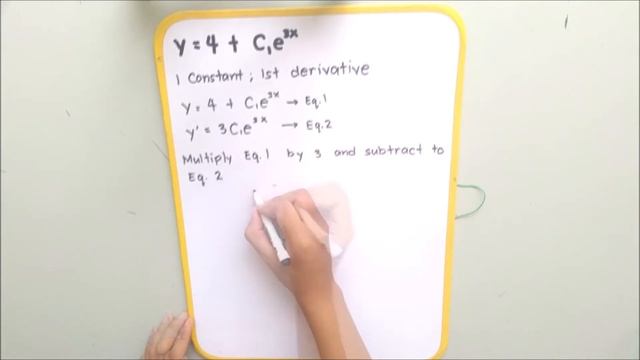 y = 4 + C₁e³ˣ
1 Constant ; 1st derivative
y = 4 + C₁e³ˣ → Eq.1
y' = 3C₁e³ˣ → Eq.2
Multiply Eq.1 by 3 and subtract to
Eq. 2